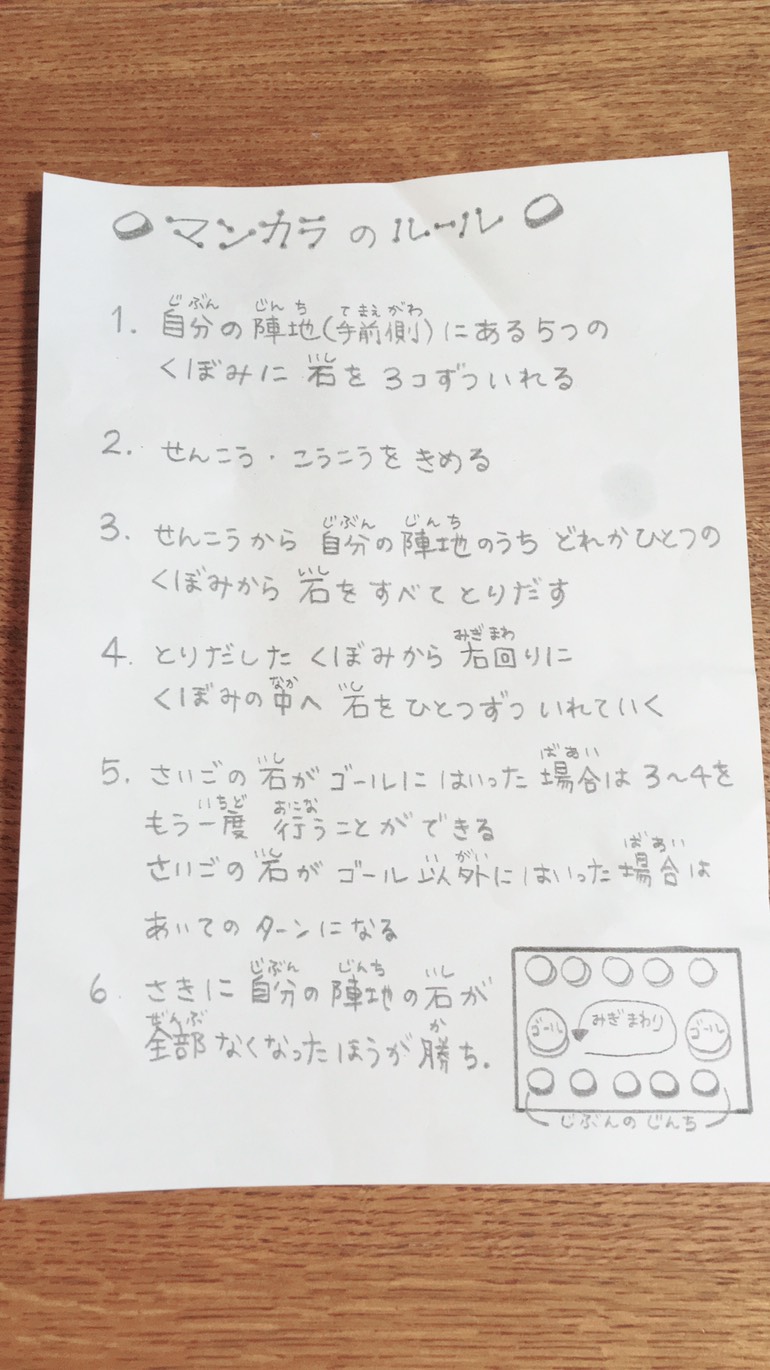 マンカラのルール
1. 自分の陣地(手前側)にある5つの
くぼみに石を3コずついれる
2. せんこう・こうこうをきめる
3. せんこうから自分の陣地のうちどれかひとつの
くぼみから石をすべてとりだす
4. とりだしたくぼみから右回りに
くぼみの中へ石をひとつずついれていく
5. さいごの石がゴールにはいった場合は3～4を
もう一度行うことができる
さいごの石がゴール以外にはいった場合は
あいてのターンになる
6. さきに自分の陣地の石が
全部なくなったほうが勝ち.
ゴール みぎまわり ゴール
じぶんのじんち